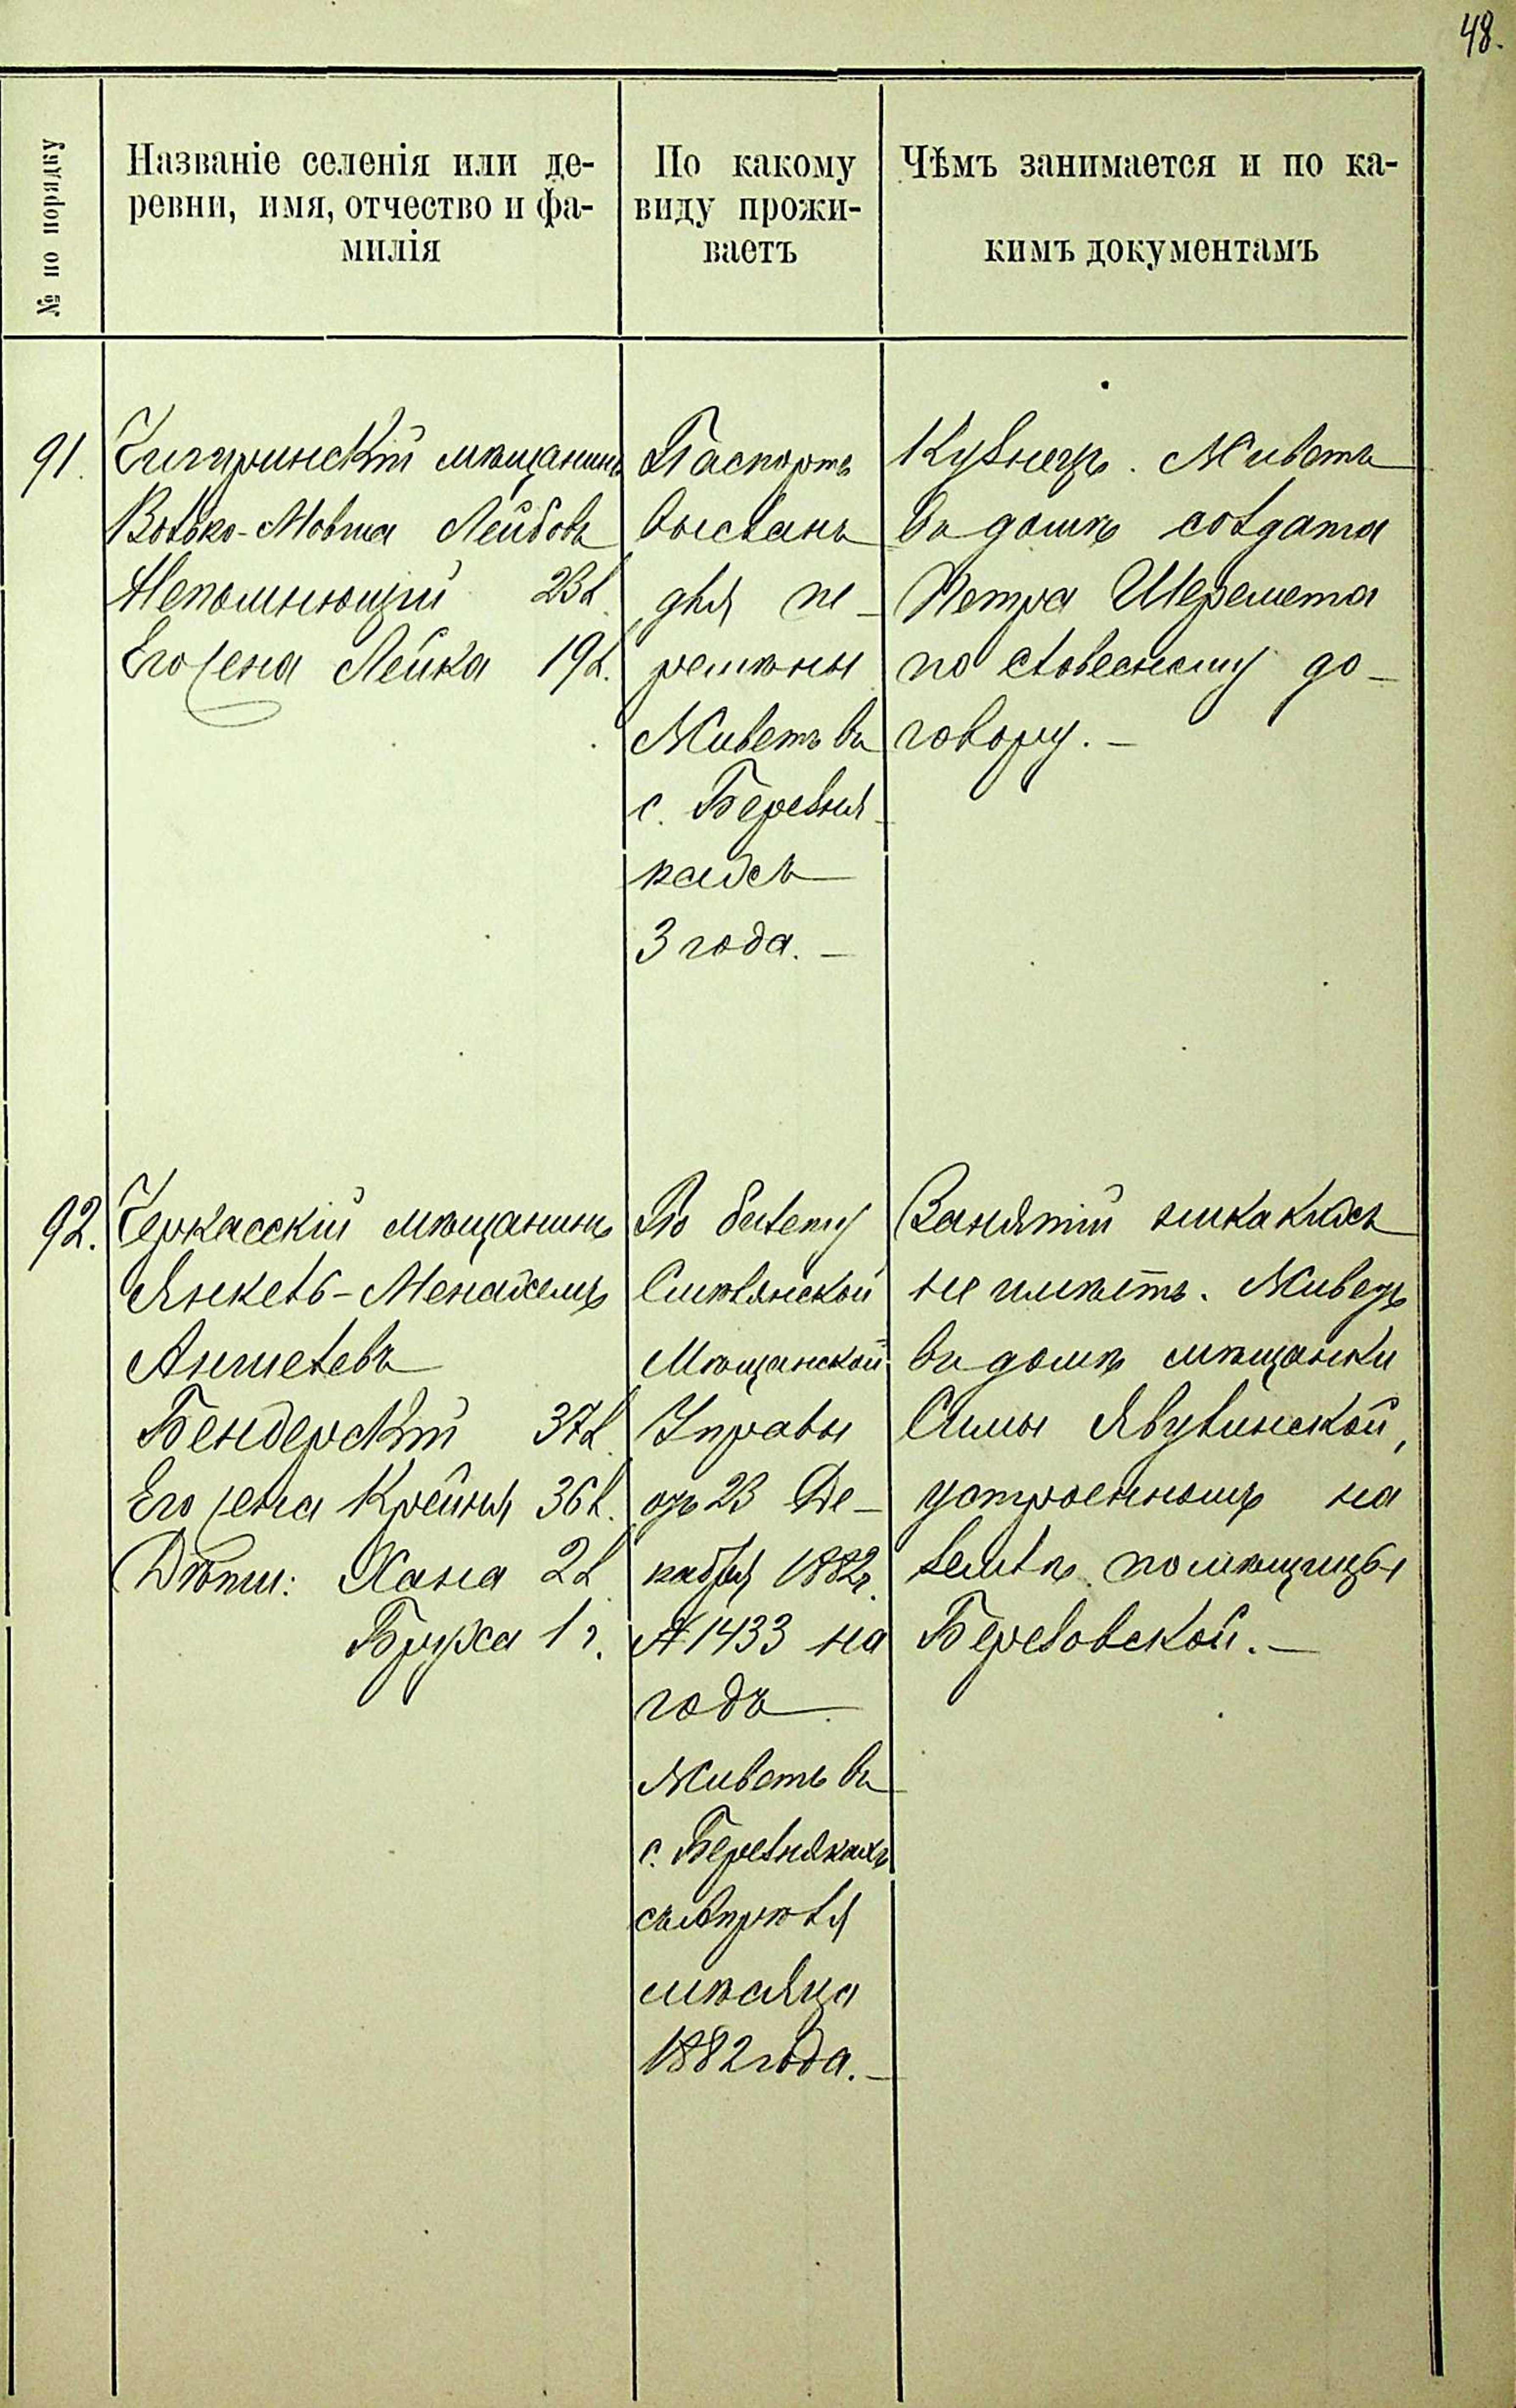 48.
№ по порядку
Названіе селенія или де-
ревни, имя, отчество и фа-
милія
По какому
виду прожи-
ваетъ
Чѣмъ занимается и по ка-
кимъ документамъ
91.
Чигиринскій мѣщанинъ
Волько-Мовша Лейбовъ
Непомнющій 23 л.
Его жена Лейка 19 л.
Паспортъ
высланъ
для пе-
ремѣны
Живетъ въ
с. Березня-
кахъ
3 года. –
Кузнецъ. Живетъ
въ домѣ солдата
Петра Шеремета
по словесному до-
говору. –
92.
Черкасскій мѣщанинъ
Янкель-Менахемъ
Аншелевъ
Бендерскій 37 л.
Его жена Крейня 36 л.
Дѣти: Хана 2 л.
Бруха 1 г.
По билету
Смѣлянской
Мѣщанской
Управы
отъ 23 Де-
кабря 1882 г.
№ 1433 на
годъ
Живетъ въ
с. Березнякахъ
съ Апрѣля
мѣсяца
1882 года. –
Занятій никакихъ
не имѣетъ. Живетъ
въ домѣ мѣщанки
Симы Язулинской,
устроенномъ на
землѣ помѣщицы
Березовской. –